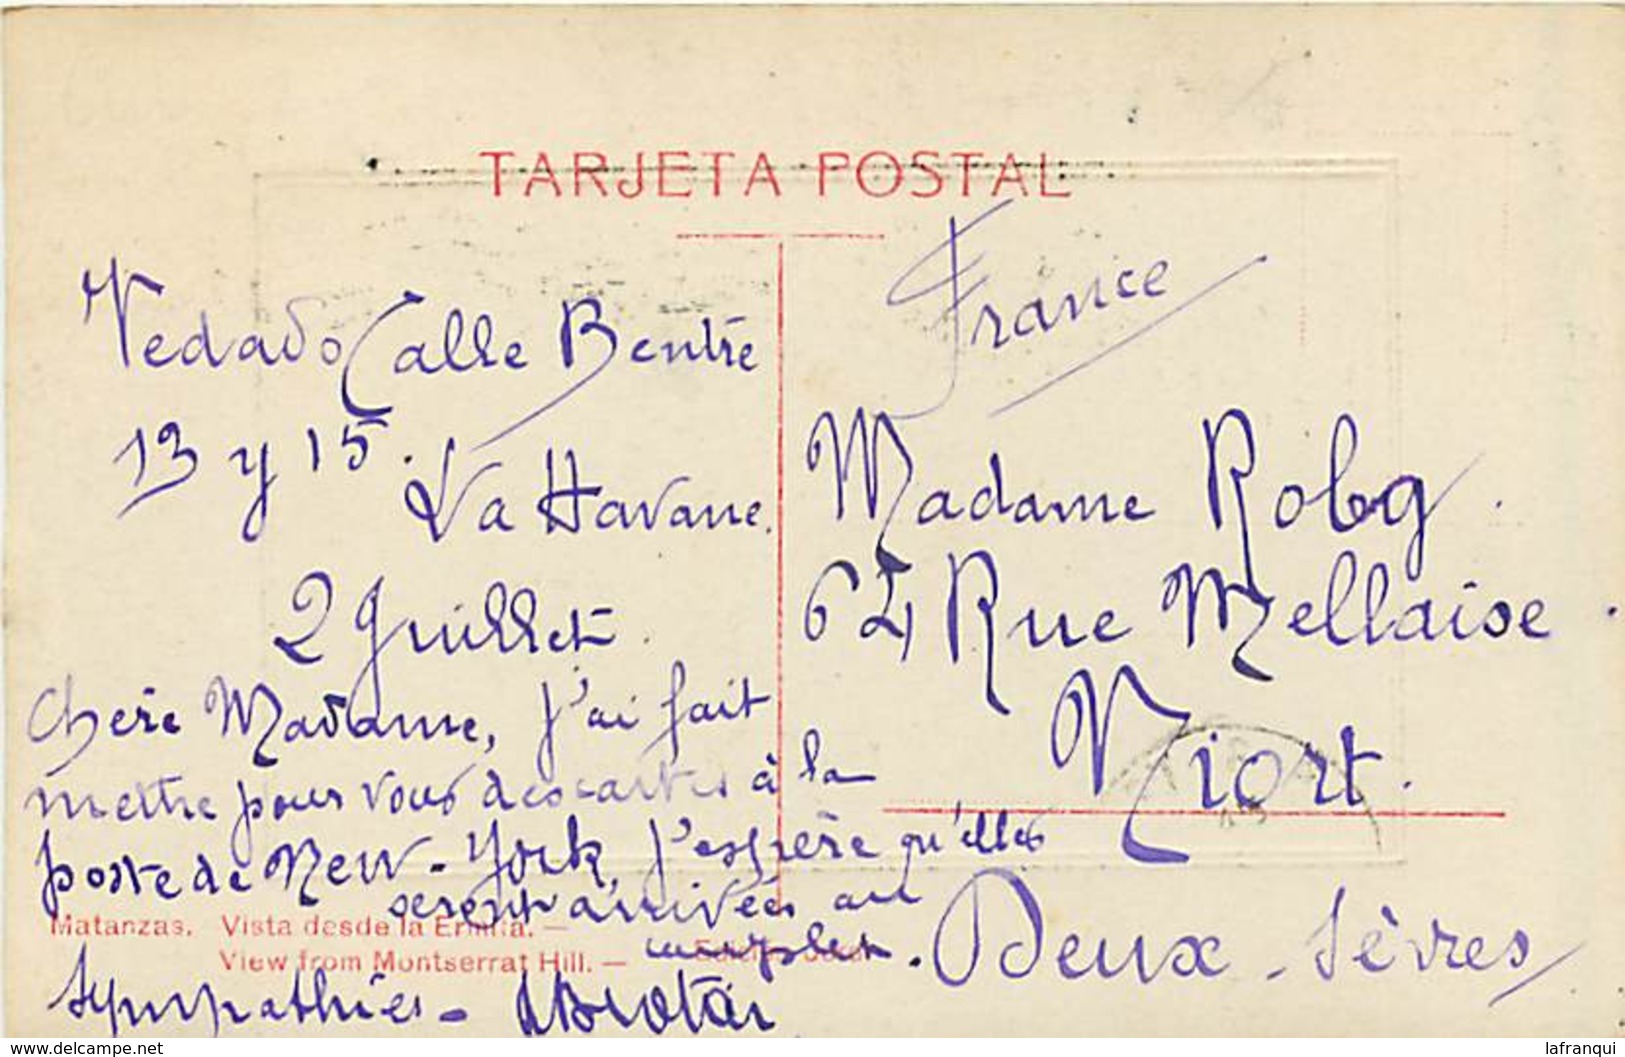 TARJETA POSTAL
Vedado Calle B entre
13 y 15.
La Havane.
2 Juillet.
Chère Madame, j'ai fait
mettre pour vous des cartes à la
poste de New-York, j'espère qu'elles
seront arrivées au
complet.
Sympathies -
France
Madame Robg
64 Rue Mellaise
Niort.
Deux-Sèvres
Matanzas. Vista desde la Ermita. —
View from Montserrat Hill. —
Edición
www.delcampe.net
lafranqui